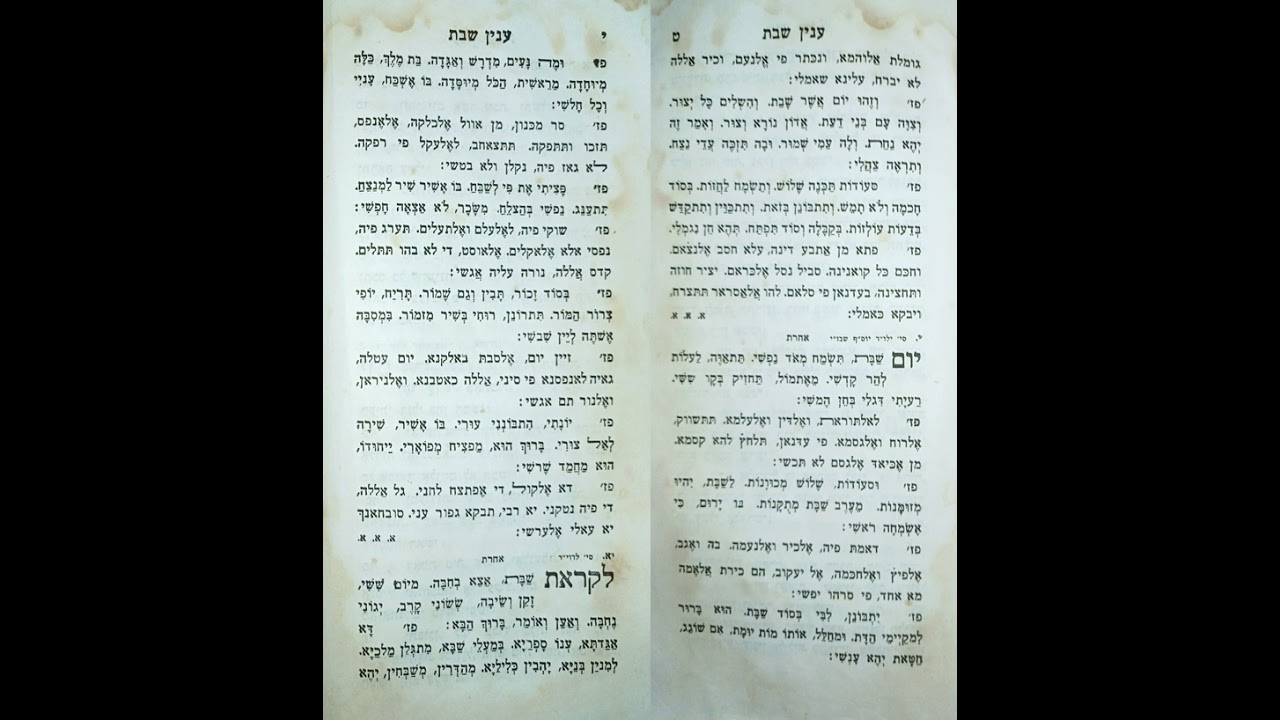 ענין שבת ט
גומלת אלוהמא, ונכתר פי אֶלנעם, וכיר אללה
לא יברח, עלינא שאמלי:
פז׳ וְזֶהוּ יוֹם אֲשֶׁר שָׁבַת. וְהִשְׁלִים כָּל יְצוּר.
וְצִוָּה עַם בְּנֵי דַעַת. אָדוֹן נוֹרָא וְצוּר. וְאָמַר זֶה
יְהֵא נַחַת. וְלָהּ עַמִּי שְׁמוֹר. וּבָהּ תִּזְכֶּה עֲדֵי נֶצַח.
וְתִרְאֶה צַהֲלִי:
פז׳ סעוּדוֹת תַּכְּנֶה שָׁלוֹשׁ. וְתִשְׂמַח לַחֲזוֹת. בְּסוֹד
חָכְמָה וְלֹא תָמֵשׁ. וְתִתְבּוֹנֵן בְּזֹאת. וְתִתְכַּוֵּין וְתִתְקַדֵּשׁ
בְּדֵעוֹת עוֹלְזוֹת. בְּקַבָּלָה וְסוֹד תִּפְתַּח. תְּהֵא חֵן נִגְמְלִי.
פז׳ פתא מן אתבע דינה, עלא חסב אלנצֹאם.
וחכם כל קואנינה. סביל נסל אלכראם. יציר חוזה
ותחצינה, בעדנאן פי סלאם. להו אֶלאסראר תתצרח,
ויבקא כאמלי: א. א. א.
י. סי׳ ילו״ד יוס״ף שבז״י אחרת
יוֹם שַׁבָּת, תִּשְׂמַח מְאֹד נַפְשִׁי. תִּתְאַוֶּה, לַעֲלוֹת
לְהַר קָדְשִׁי. מֵאֶתְמוֹל, תַּחֲזִיק בְּקַו שִׁשִּׁי.
רַעְיָתִי דִּגְלִי בְּחֵן הַמֶּשִׁי:
פז׳ לאלתוראת, ואֶלדין ואֶלעלמא. תתשווק,
אֶלרוח ואֶלגסמא. פי עדנאן, תלחץ להא קסמא.
מן אֶכיאד אֶלגסם לא תכשי:
פז׳ וּסעוּדוֹת, שָׁלוֹשׁ מְכוּוָנוֹת. לַשַּׁבָּת, יִהְיוּ
מְזוּמָּנוֹת. מֵעֶרֶב שַׁבָּת מְתֻקָּנוֹת. בּוֹ יָרוּם, כִּי
אֶשְׂמְחָה רֹאשִׁי:
פז׳ דאמת פיה, אֶלכיר ואֶלנעמה. בה ואגב,
אֶלפיץ ואֶלחכמה, אֶל יעקוב, הם כירת אֶלאֶמה
מא אחד, פי סרהו יפשי:
פז׳ יִתְבּוֹנֵן, לִבִּי בְּסוֹד שַׁבָּת. הוּא בָּרוּךְ
לִמְקַיְּימֵי הַדָּת. וּמְחַלֵּל, אוֹתוֹ מוֹת יוּמָת, אִם שׁוֹגֵג,
חַטָּאת יְהֵא עָנְשִׁי:
י ענין שבת
פז׳ וּמָה נָּעִים, מִדְרָשׁ וְאַגָּדָה. בַּת מֶלֶךְ, כַּלָּה
מְיוּחָדָה. מֵרֵאשִׁית, הַכֹּל מְיוּסָּדָה. בּוֹ אֶשְׁכַּח, עָנְיִי
וְכָל חָלְשִׁי:
פז׳ סר מכנון, מן אוול אֶלכלקה, אֶלאֶנפס,
תזכו ותתפקה. תתצאחב, לאֶלעקל פי רפקה.
לא גאז פיה, נקלן ולא בטשי:
פז׳ פָּצִיתִי אֶת פִּי לְשַׁבֵּחַ. בּוֹ אָשִׁיר שִׁיר לַמְנַצֵּחַ.
תִּתְעַנֵּג. נַפְשִׁי בְּהַצְלֵחַ. מִשֵּׂכָר, לֹא אֵצְאָה חָפְשִׁי:
פז׳ שוקי פיה, לאֶלעלם ואֶלתעלים. תערג פיה,
נפסי אלא אֶלאקלים. אֶלאוסט, די לא בהו תתלים.
קדס אללה, נורה עליה אֶגשי:
פז׳ בְּסוֹד זָכוֹר, תָּבִין וְגַם שָׁמוֹר. תָּרִיחַ, יוֹפִי
צְרוֹר הַמּוֹר. תִּתְרוֹנֵן, רוּחִי בְּשִׁיר מִזְמוֹר. בִּמְסִבָּה
אֶשְׁתֶּה לְיֵין שִׁבְשִׁי:
פז׳ זיין יום, אֶלסבת באֶלקנא. יום עטלה,
גאיה לאנפסנא פי סיני, אללה כאטבנא. ואֶלניראן,
ואֶלנור תם אגשי:
פז׳ יוֹנָתִי, הִתְבּוֹנְנִי עוּרִי. בּוֹ אָשִׁיר, שִׁירָה
לְאֵל צוּרִי. בָּרוּךְ הוּא, מֵפְצִיחַ מְפוֹאָרִי. יִיחוּדוֹ,
הוּא מַחֲמַד שָׁרְשִׁי:
פז׳ דא אֶלקול, די אֶפתצח לחני. גל אללה,
די פיה נטקני. יא רבי, תבקא גפור עני. סובחאנךּ
יא עאלי אֶלערשי: א. א. א.
יא. סי׳ לדוי״ד אחרת
לִקְרַאת שַׁבָּת, אֵצֵא בְּחִבָּה. מִיּוֹם שִׁשִּׁי,
זָקֵן וְשֵׂיבָה, שְׂשׂוֹנִי קָרֵב, יְגוֹנִי
נֶחְבָּה. וְאַעַן וְאוֹמַר, בָּרוּךְ הַבָּא: פז׳ דָּא
אֲגַדְתָּא, עֲנוֹ סָפְרַיָּא. בְּמַעֲלֵי שַׁבָּא, מִתְגַּלְּן מַלְכַיָּא.
לְמִנְיַן בְּנַיָּא, יָהֲבִין כְּלִילַיָּא. מְהַדְּרִין, מְשַׁבְּחִין, יְהֵא